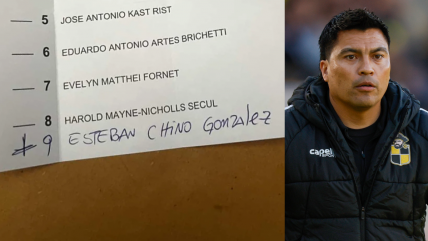 5 JOSE ANTONIO KAST RIST
6 EDUARDO ANTONIO ARTES BRICHETTI
7 EVELYN MATTHEI FORNET
8 HAROLD MAYNE-NICHOLLS SECUL
+ 9 ESTEBAN CHINO GONZALEZ
Capelli